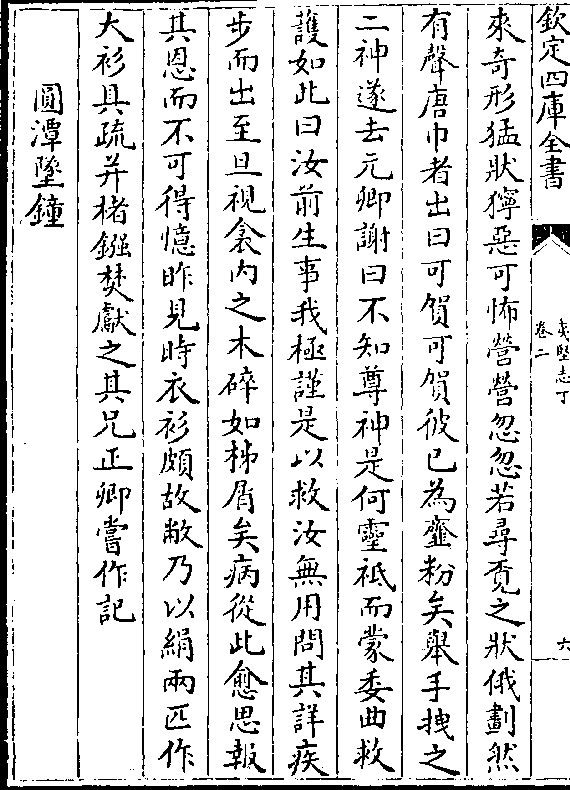 欽定四庫全書
夷堅志丁
卷二
六
來奇形猛狀獰惡可怖營營忽忽若尋覓之狀俄劃然
有聲唐巾者出曰可賀可賀彼已為虀粉矣舉手拽之
二神遂去元卿謝曰不知尊神是何靈祗而蒙委曲救
䕶如此曰汝前生事我極謹是以救汝無用問其詳疾
步而出至旦視衾内之木碎如柹屑矣病從此愈思報
其恩而不可得憶昨見時衣衫頗故敝乃以絹兩匹作
大衫具疏并楮鏹焚獻之其兄正卿嘗作記
圓潭墜鐘